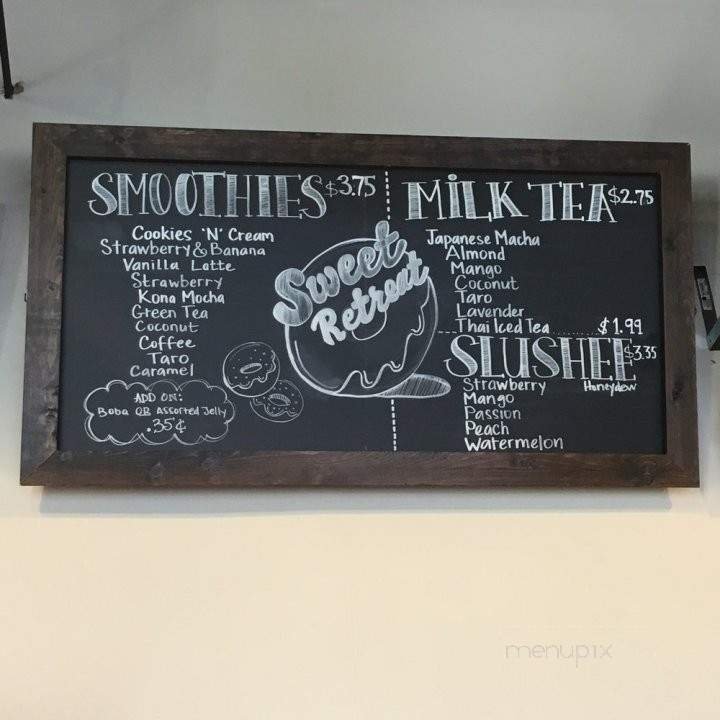 SMOOTHIES $3.75
Cookies 'N' Cream
Strawberry & Banana
Vanilla Latte
Strawberry
Kona Mocha
Green Tea
Coconut
Coffee
Taro
Caramel
ADD ON:
Boba OR Assorted Jelly
.35¢
Sweet
Retreat
MILK TEA $2.75
Japanese Macha
Almond
Mango
Coconut
Taro
Lavender
Thai Iced Tea ......... $1.99
SLUSHEE $3.35
Strawberry Honeydew
Mango
Passion
Peach
Watermelon
menupix